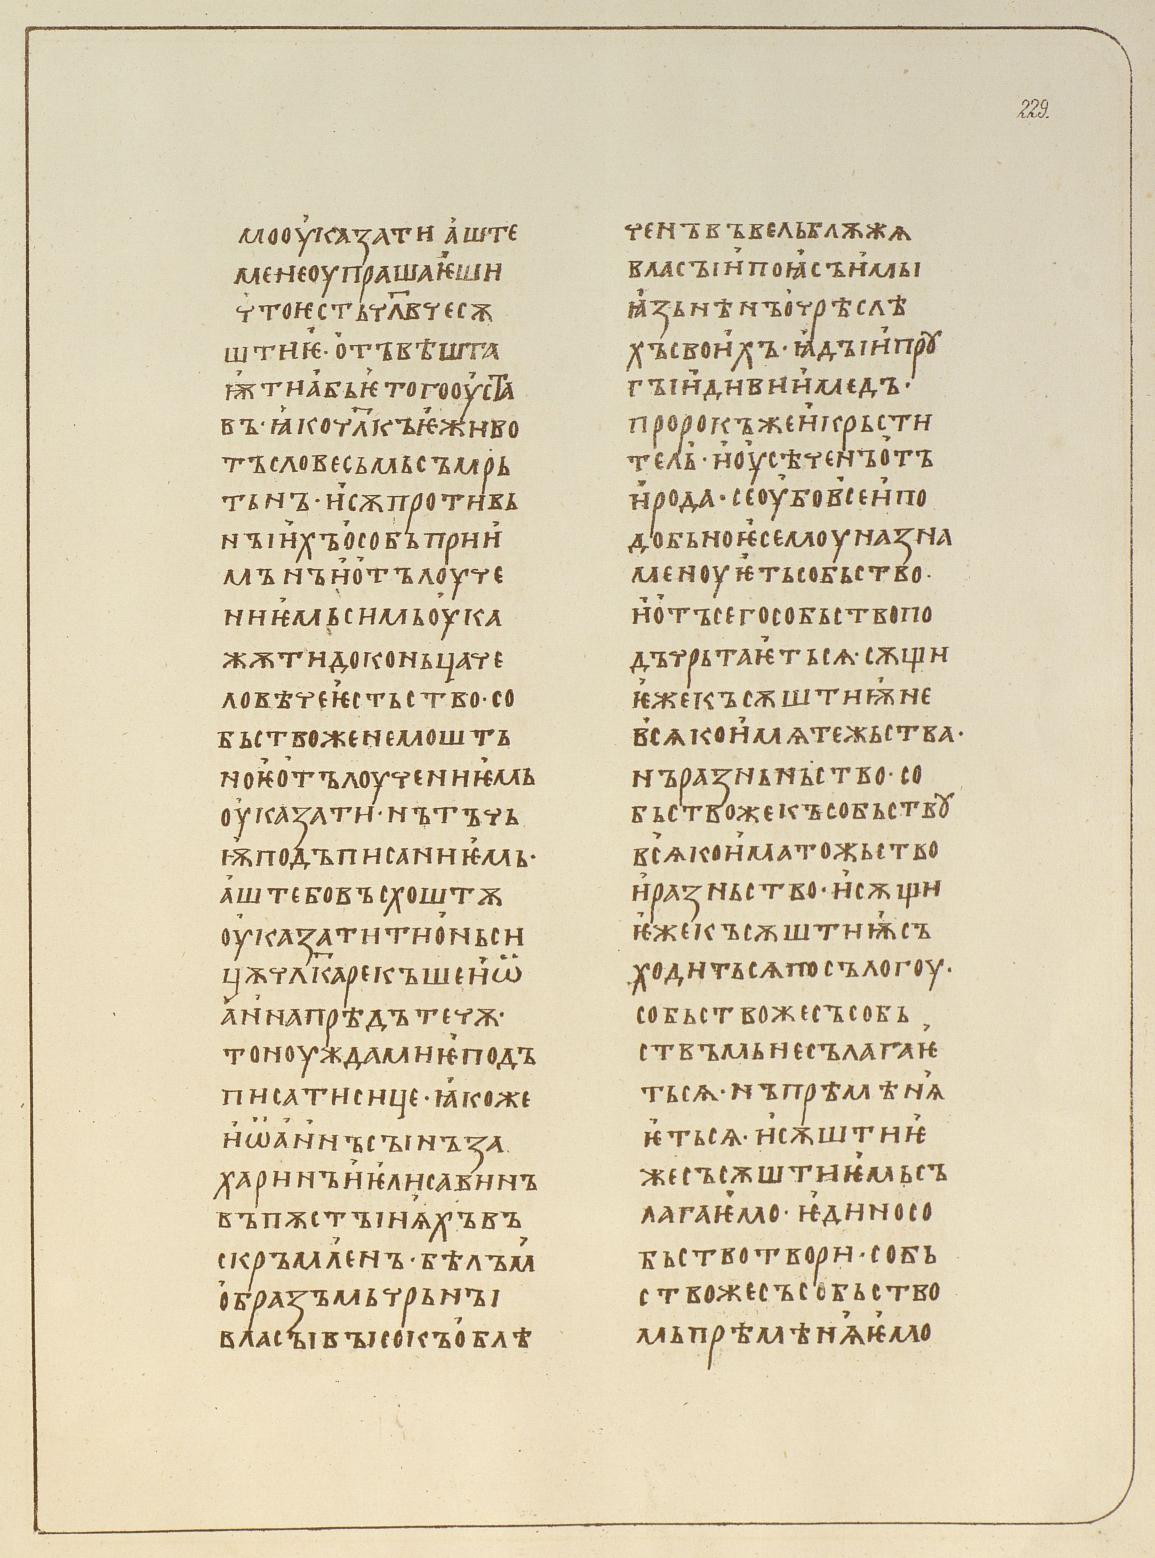 229.
моѹказати аште
менеоупрашаѥши
чтоѥстьчл҃вчесѫ
штиѥ· отъвѣшта
ѭтиабьѥтогооуста
въ· ꙗкочл҃къѥживо
тъсловесьмьсъмрь
тьнъ· исѫпротивь
нъıихъособьприи
мънъиотълоуче
нниѥмьсимьоука
жѫтидоконьцаче
ловѣчеѥстьство· со
бьствоженемошть
ноѥотълоучениѥмь
оуказати· нътъчь
ѭподъписаниѥмь·
аштебовъсхоштѫ
оуказатитионьси
цѫчл҃карекъшеиѡ
аннапрѣдътечѫ·
тоноуждамниѥподъ
писатисице· ꙗкоже
иѡаннъсъıнъза
хариинъиѥлисавиинъ
въпѫстъıнѧхъвъ
скръмленъ· бѣлъм
образъмьчрьнъı
власъıвъıсокъоблѣ
ченъвъвельблѫжѧ
власъıипоꙗсъимы
ꙗзьнѣнъочрѣслѣ
хъсвоихъ· ꙗдъıипрꙋ
гъıидивиимедъ·
пророкъжеикрьсти
тель· иоусѣченъотъ
ирода· сеоубовсеипо
добьноѥсемоуназна
меноуѥтьсобьство·
иотъсегособьствопо
дъчрьтаѥтьсѧ· сѫщи
ѥжекъсѫштиѭне
всѧкоимѧтежьства·
нъразньньство· со
бьствожекъсобьствꙋ
всѧкоиматожьство
иразньство· исѫщи
ѥжекъсѫштиѭсъ
ходитьсѧпосълогоу·
собьствожесъсобь
ствъмьнесълагаѥ
тьсѧ· нъпрѣмѣнѧ
ѥтьсѧ· исѫштиѥ
жесъсѫштиѥмьсъ
лагаѥмо· ѥдиносо
бьствотвори· собь
ствожесъсобьство
мьпрѣмѣнѧѥмо